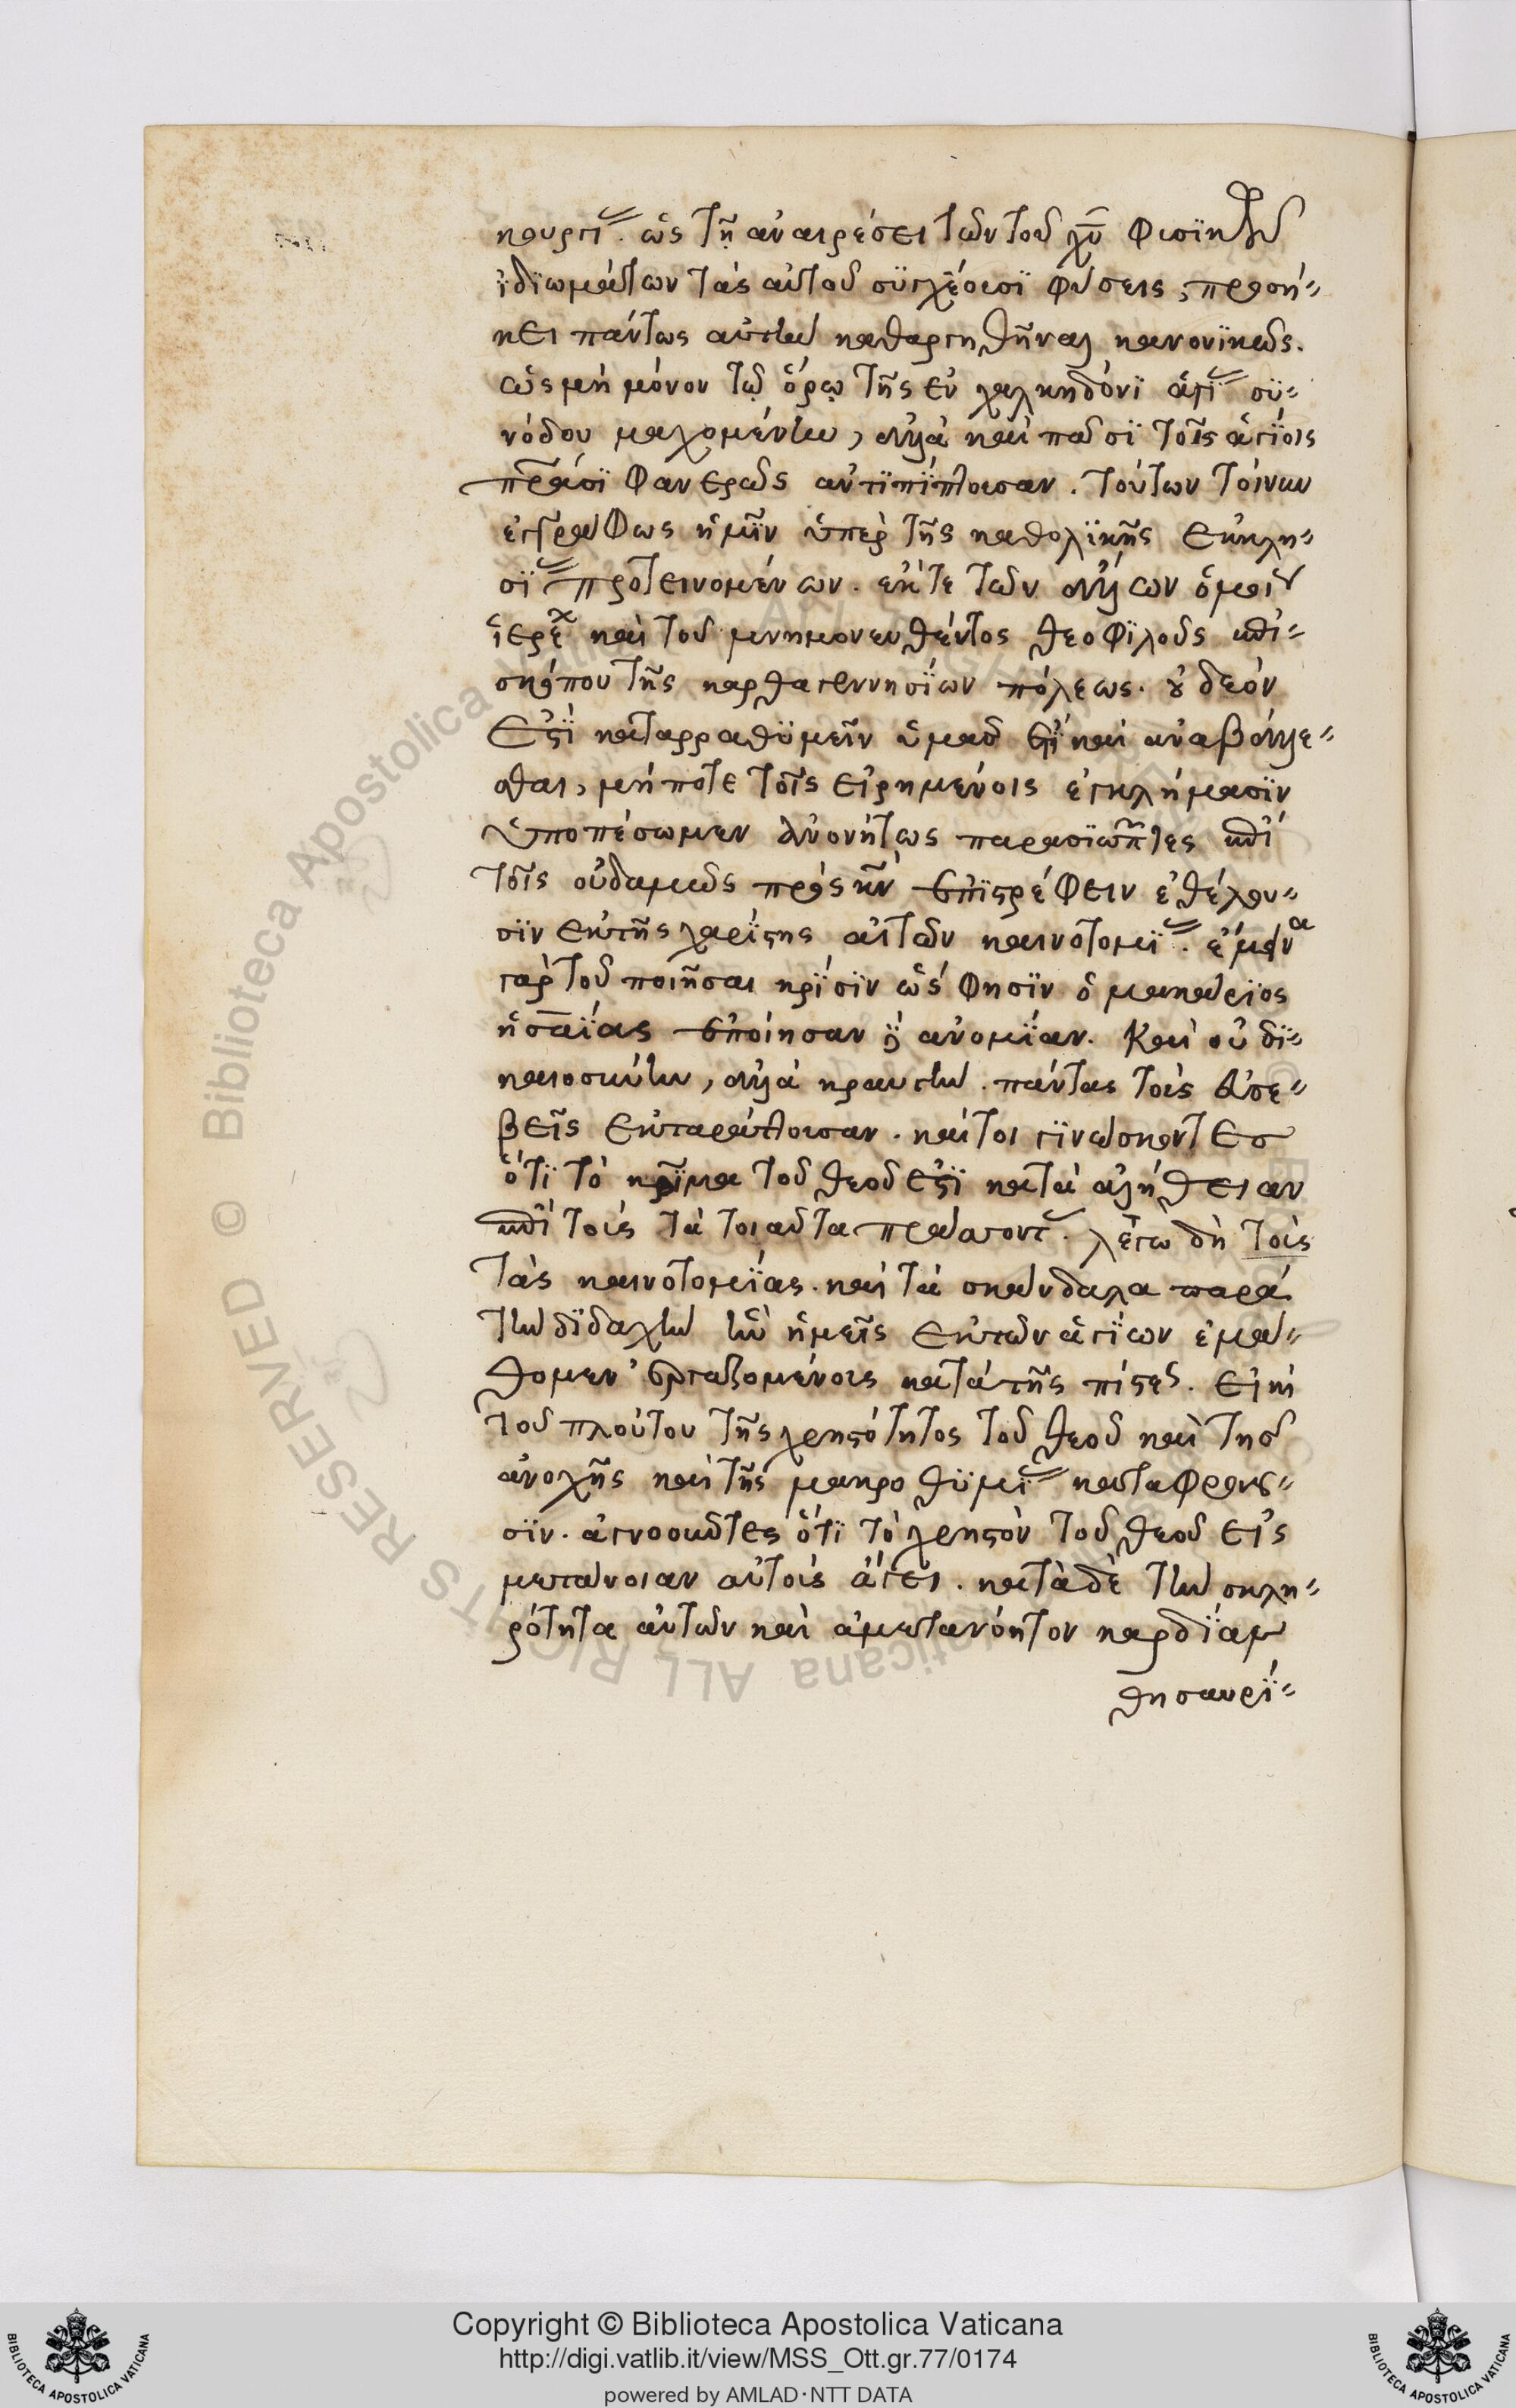 κουργίας. ὡς τῇ ἀναιρέσει τῶν τοῦ χυ φυσϊκῶν
ϊδϊωμάτων τὰς αὐτοῦ συγχέουσϊ φύσεις, προσή-
κει πάντως αὐτὴν καθαρτηθῆναι κανονϊκῶς.
ὡς μὴ μόνον τῷ ὅρῳ τῆς ἐν χαλκηδόνϊ ἁγίας συ-
νόδου μαχομένην, ἀλλὰ καὶ πᾶσϊ τοῖς ἁγϊοις
πρασϊ φανερῶς ἀντϊπϊπτουσαν. τούτων τοίνυν
ἐγγράφως ἡμῖν ὑπὲρ τῆς καθολϊκῆς ἐκκλη-
σίας προτεινομένων. ἐκ τε τῶν ἄλλων ὁμοῦ
ἱερέων καὶ τοῦ μνημονευθέντος θεοφϊλοῦς ἐπι-
σκόπου τῆς καρθαγεννησϊων πόλεως. οὐ δεόν
ἐστϊ καταρραθυμεῖν ὑμᾶς ἔτϊ καὶ ἀναβάλλε-
σθαι, μήποτε τοῖς εἰρημένοις ἐγκλήμασϊν
ὑποπέσωμεν ἀνονήτως παρασϊωπῶντες ἐπὶ
τοῖς οὐδαμῶς πρὸς κν ἐπϊστρέφειν ἐθέλου-
σϊν ἐκ τῆς χαρίστης αὐτῶν καινοτομίας. ἔμειναν
γὰρ τοῦ ποιῆσαι κρίσϊν ὥς φησϊν ὁ μακάριος
ἡσαΐας ἐποίησαν δὲ ἀνομϊαν. καὶ οὐ δϊ-
καιοσύνην, ἀλλὰ κραυγὴν. πάντας τοὺς ἀσε-
βεῖς ἐκταράττουσαν. καίτοι γϊνώσκοντες
ὅτϊ τὸ κρῖμα τοῦ θεοῦ ἐστϊ κατὰ ἀλήθειαν
ἐπὶ τοὺς τὰ τοιαῦτα πράττοντας. λέγω δὴ τοὺς
τὰς καινοτομϊας. καὶ τὰ σκάνδαλα παρὰ
τὴν δϊδαχὴν ἣν ἡμεῖς ἐκ τῶν ἁγϊων ἐμά-
θομεν ἐργαζομένοις κατὰ τῆς πίστεως. εἰ καὶ
τοῦ πλούτου τῆς χρηστότητος τοῦ θεοῦ καὶ τῆς
ἀνοχῆς καὶ τῆς μακροθυμίας καταφρονοῦ-
σϊν. ἀγνοοῦντες ὅτϊ τὸ χρηστὸν τοῦ θεοῦ εἰς
μετάνοιαν αὐτοὺς ἄγει. κατὰ δὲ τὴν σκλη-
ρότητα αὐτῶν καὶ ἀμετανόητον καρδϊαν
θησαυρϊ-
Copyright © Biblioteca Apostolica Vaticana
http://digi.vatlib.it/view/MSS_Ott.gr.77/0174
powered by AMLAD·NTT DATA